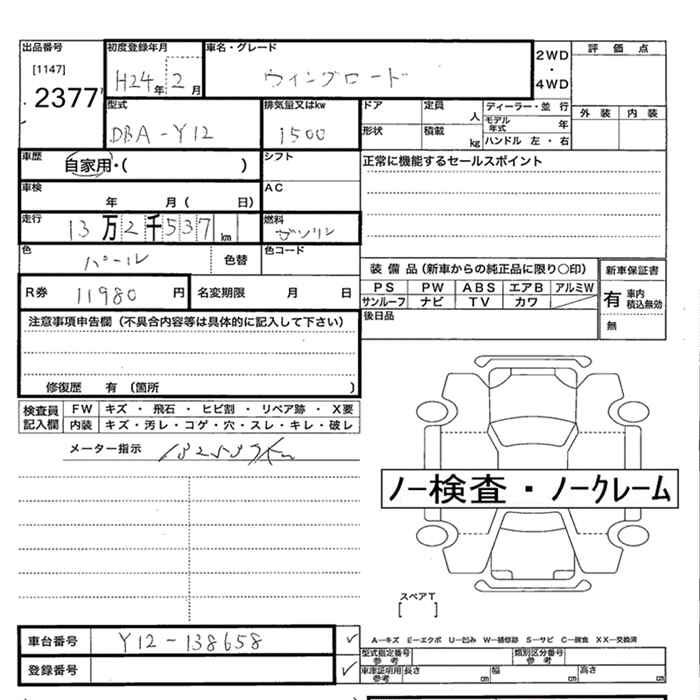 出品番号 初度登録年月 車名・グレード 2WD・4WD 評価点
[1147] 2377 H24年 2月 ウィングロード
外装 内装
型式 排気量又はkw ドア 定員 人 ディーラー・並行
DBA-Y12 1500 形状 積載 kg モデル年式 年
ハンドル 左・右
車歴 自家用・( ) シフト 正常に機能するセールスポイント
車検 年 月( 日) AC
走行 13万2千537km 燃料 ガソリン
色 パール 色替 色コード
装備品(新車からの純正品に限り〇印) 新車保証書
PS PW ABS エアB アルミW 有 車内積込無効
サンルーフ ナビ TV カワ
R券 11980円 名変期限 月 日 後日品 無
注意事項申告欄(不具合内容等は具体的に記入して下さい)
修復歴 有(箇所 )
検査員記入欄 FW キズ・飛石・ヒビ割・リペア跡・X要
内装 キズ・汚レ・コゲ・穴・スレ・キレ・破レ
メーター指示 132537km
ノー検査・ノークレーム
スペアT
[ ]
車台番号 Y12-138658 ✓
A-キズ E-エクボ U-凹み W-補修跡 S-サビ C-腐食 XX-交換済
型式指定番号 参考 類別区分番号 参考
登録番号 ✓ 車庫証明用 参考 長さ cm 幅 cm 高さ cm